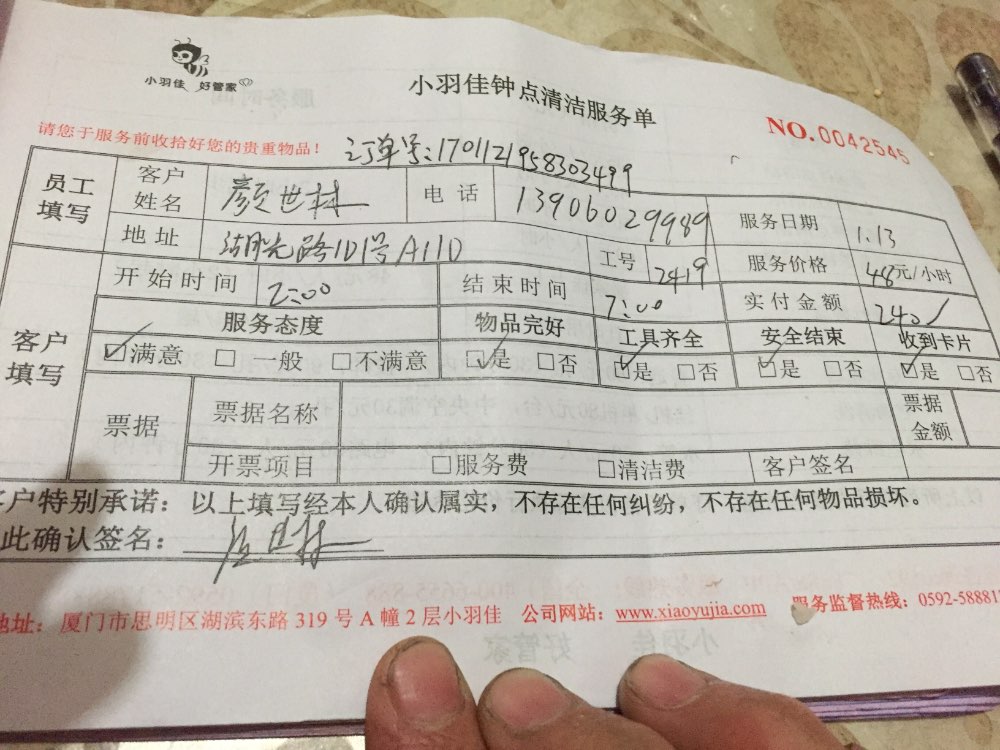 小羽佳 好管家
小羽佳钟点清洁服务单
NO.0042545
请您于服务前收拾好您的贵重物品！
订单号:1701121958303499
员工填写 客户姓名 颜世林 电话 13906029989 服务日期 1.13
地址 湖光路101号A11D 工号 2419 服务价格 48元/小时
客户填写 开始时间 2:00 结束时间 7:00 实付金额 240
服务态度 物品完好 工具齐全 安全结束 收到卡片
☑满意 □一般 □不满意 ☑是 □否 ☑是 □否 ☑是 □否 ☑是 □否
票据 票据名称 票据金额
开票项目 □服务费 □清洁费 客户签名
客户特别承诺：以上填写经本人确认属实，不存在任何纠纷，不存在任何物品损坏。
此确认签名：
地址：厦门市思明区湖滨东路 319 号 A 幢 2 层小羽佳 公司网站：www.xiaoyujia.com 服务监督热线：0592-58881